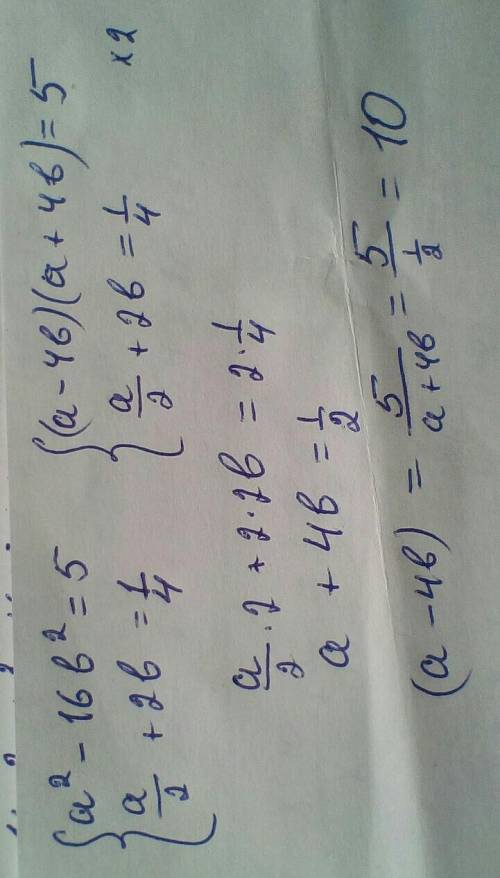 { a² - 16b² = 5
a/2 + 2b = 1/4
{ (a - 4b)(a + 4b) = 5
a/2 + 2b = 1/4 x 2
a/2 · 2 + 2 · 2b = 2 · 1/4
a + 4b = 1/2
(a - 4b) = 5/(a + 4b) = 5/(1/2) = 10